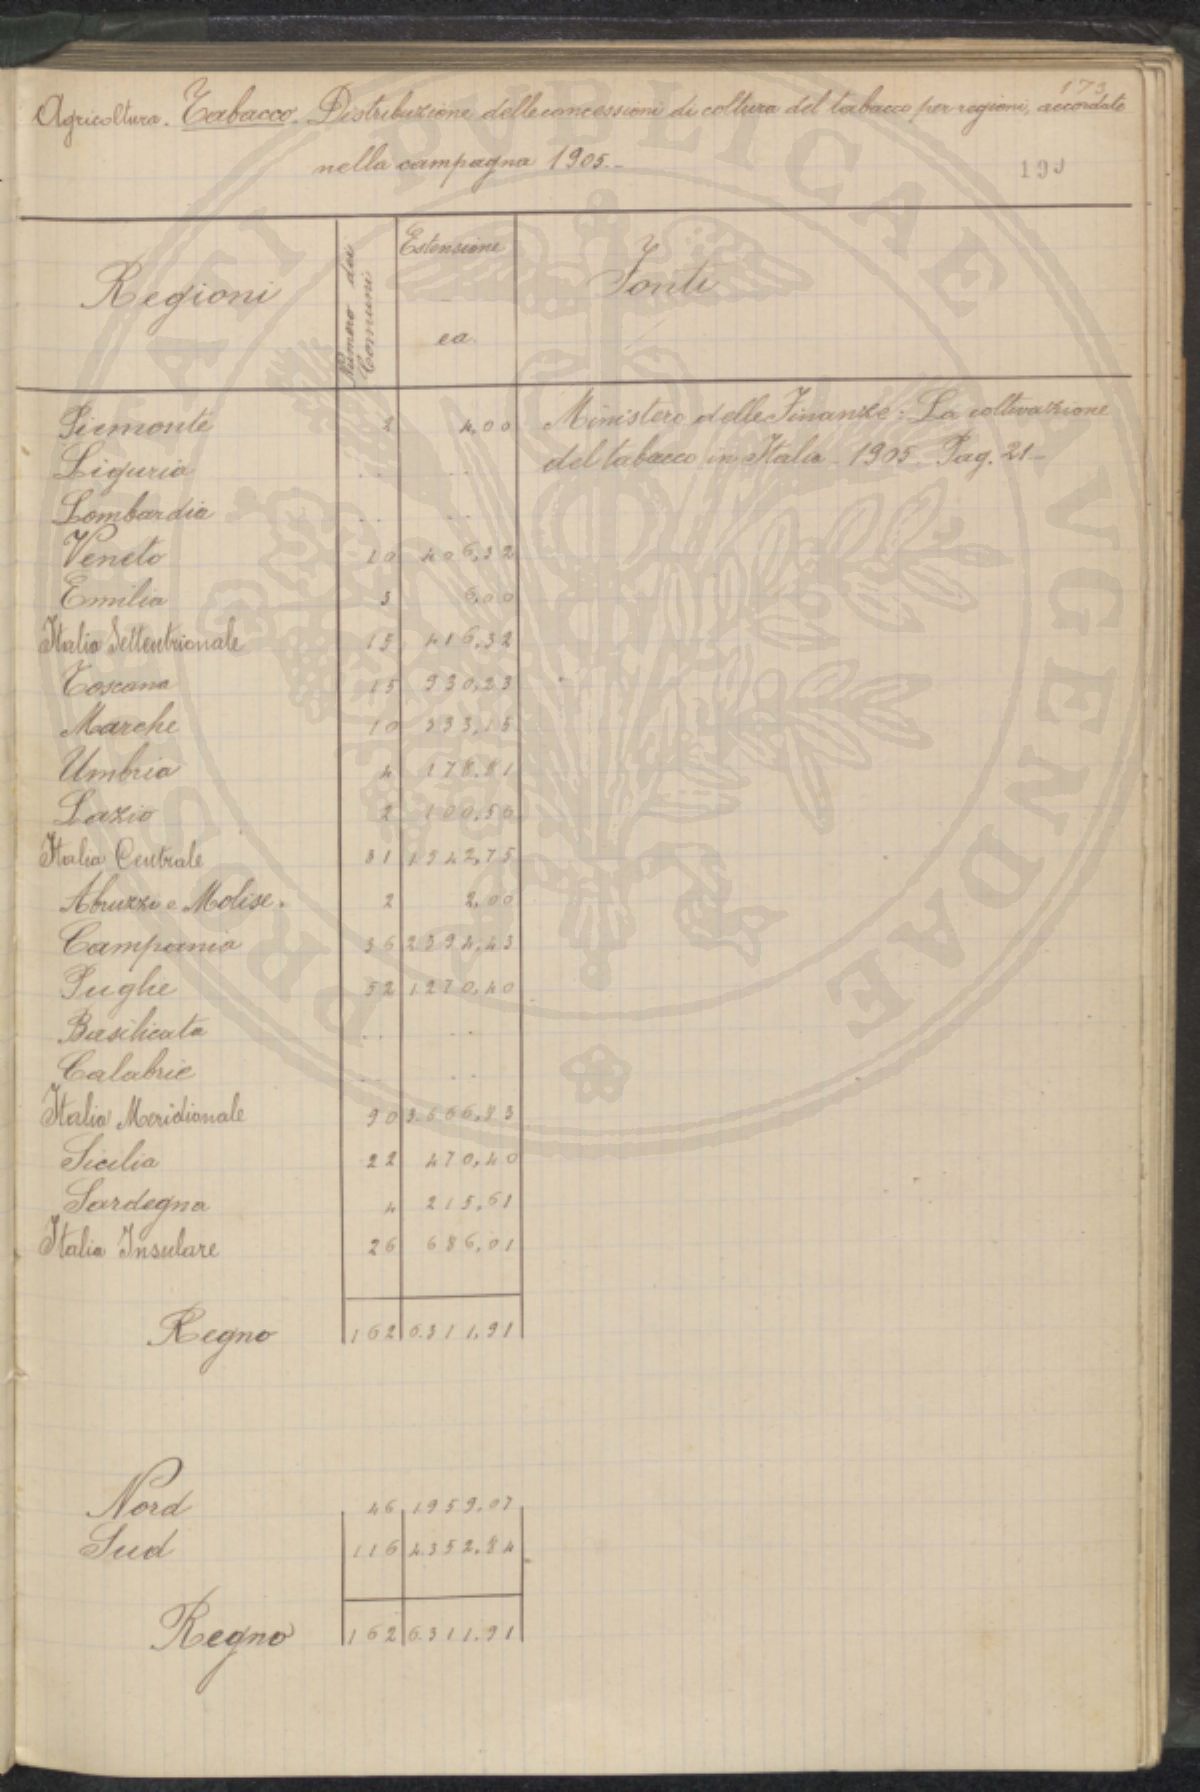 173
Agricoltura. Tabacco. Distribuzione delle concessioni di coltura del tabacco per regioni, accordate
nella campagna 1905.-
199
Regioni Numero dei Comuni Estensione ea. Fonti
Piemonte 2 4,00 Ministero delle Finanze: La coltivazione
Liguria .. .. del tabacco in Italia - 1905. Pag. 21-
Lombardia .. ..
Veneto 10 406,32
Emilia 3 6,00
Italia Settentrionale 15 416,32
Toscana 15 930,23
Marche 10 333,15
Umbria 4 178,81
Lazio 2 100,56
Italia Centrale 31 1.542,75
Abruzzi e Molise. 2 2,00
Campania 36 2394,43
Puglie 52 1.270,40
Basilicata .. ..
Calabrie .. ..
Italia Meridionale 90 3.666,83
Sicilia 22 470,40
Sardegna 4 215,61
Italia Insulare 26 686,01
Regno 162 6.311,91
Nord 46 1959,07
Sud 116 4.352,84
Regno 162 6.311,91
PUBLICAE AVGENDAE